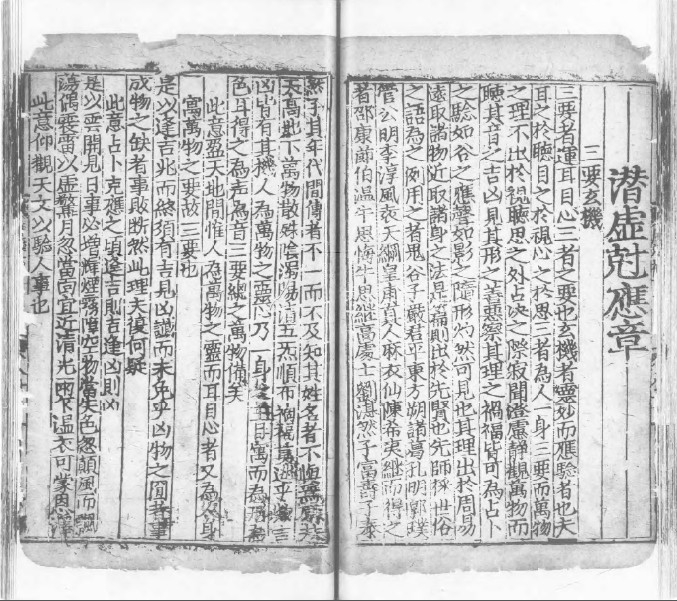 潛虛尅應章
三要玄機
三要者運耳目心三者之要也玄機者靈妙而應驗者也夫
耳之於聽目之於視心之於思三者為人一身三要而萬物
之理不出於視聽思之外占决之際寂聞澄慮靜觀萬物而
聽其音之吉凶見其形之善惡察其理之禍福皆可為占卜
之驗如谷之應聲如影之隨形灼然可見也其理出於周易
遠取諸物近取諸身之法是篇則出於先賢也先師採世俗
之語為之例用之者鬼谷子嚴君平東方朔諸葛孔明郭璞
管公明李淳風袁天綱皇甫真人麻衣仙陳希夷繼而得之
者邵康節伯溫牛思晦牛思繼高處士劉湛然子富壽子泰
然子其年代間傳者不一而不及知其姓名者不焉原夫
天高地下萬物散殊陰濁陽清五炁順布禍福莫逃乎吉
凶皆有其機人為萬物之靈心乃一身之主目寓而為形為
色耳得之為為音三要總之萬物備矣
此意盈天地間惟人為萬物之靈而耳目心者又為人身
寓萬物之要故三要也
是以逢吉兆而終須有吉見凶讖而未免乎凶物之圓者事
成物之缺者事敗断然此理夫復何疑
此意占卜克應之頃逢吉則吉逢凶則凶
是以雲開見日事必增輝煙霧障空物當失色忽顛風而飄
蕩偶震雷以虛驚月忽當面宜近清光雨乍溫衣可蒙恩澤
此意仰觀天文以驗人事也